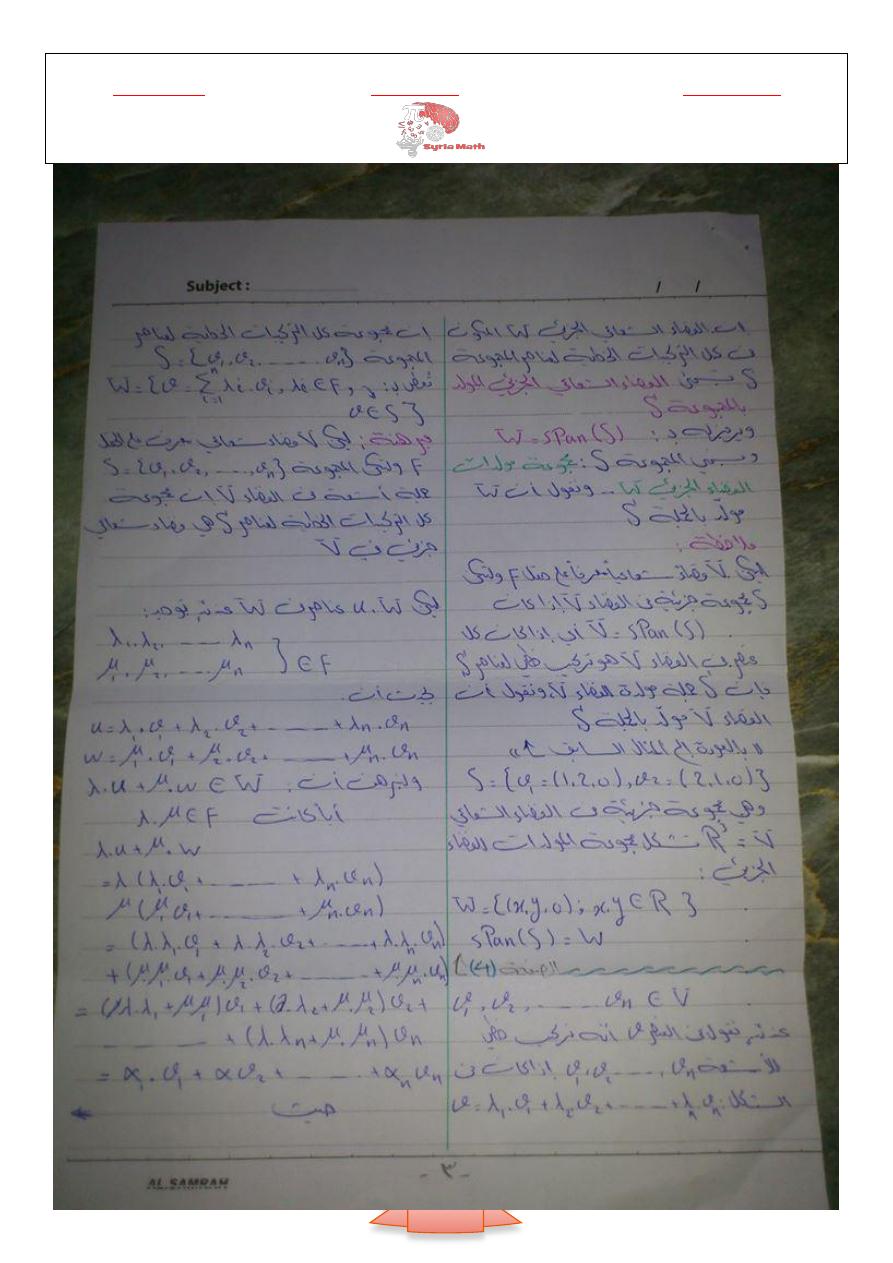 Syria Math
Subject :
/ /
ان الفضاء الشعاعي الجزئي W المكون
من كل التركيبات الخطية لعناصر المجموعة
S تسمى الفضاء الشعاعي الجزئي المولد
بالمجموعة S
ويرمز له بـ : W = span(S)
وتسمى المجموعة S : مجموعة مولدات
الفضاء الجزئي W .. ونقول أن W
مولد بالجملة S
ملاحظة :
ليكن V فضاء شعاعياً معرفاً على حقل F ولتكن
S مجموعة جزئية من الفضاء V إذا كانت
V = span(S) أي إذا كان كل
عنصر من الفضاء V هو تركيب خطي لعناصر S
فإن S جملة مولدة للفضاء V ونقول أن
الفضاء V مولد بالجملة S
« بالعودة إلى المثال السابق ↑ »
S = {v₁ = (1,2,0), v₂ = (2,1,0)}
وهي مجموعة جزئية من الفضاء الشعاعي
V = R³ تشكل مجموعة المولدات للفضاء
الجزئي :
W = {(x,y,0) ; x,y ∈ R }
span(S) = W
v₁, v₂, ........ vn ∈ V
عندئذ نقول عن العنصر v أنه تركيب خطي
للأشعة v₁, v₂ ......, vn إذا كان من
الشكل : v = λ₁.v₁ + λ₂.v₂ + ...... + λn.vn
ان مجموعة كل التركيبات الخطية لعناصر
المجموعة S = {v₁, v₂, ........ vn}
تعطى بـ : W = {v = Σⁿᵢ₌₁ λi.vi , λi ∈ F ,
v ∈ S }
مبرهنة : ليكن V فضاء شعاعي معرف على الحقل
F ولتكن المجموعة S = {v₁, v₂, ....., vn}
جملة أشعة من الفضاء V ان مجموعة
كل التركيبات الخطية لعناصر S هي فضاء شعاعي
جزئي في V
ليكن u, W عناصر من W عندئذ يوجد :
λ₁, λ₂, ...... λn
μ₁, μ₂, ..... μn } ∈ F
بحيث أن .
u = λ₁.v₁ + λ₂.v₂ + ........ + λn.vn
w = μ₁.v₁ + μ₂.v₂ + ........ + μn.vn
ولنبرهن أن : λ.u + μ.w ∈ W
أياً كانت λ, μ ∈ F
λ.u + μ.w
= λ (λ₁.v₁ + ........ + λn.vn)
μ (μ₁v₁ + ........ + μn.vn)
= (λ.λ₁.v₁ + λ.λ₂.v₂ + ...... + λ.λn.vn)
+ (μ.μ₁.v₁ + μ.μ₂.v₂ + ....... + μ.μn.vn)
= (λ.λ₁ + μ.μ₁)v₁ + (λ.λ₂ + μ.μ₂)v₂ +
........ + (λ.λn + μ.μn)vn
= α₁.v₁ + αv₂ + ....... + αn vn
حيث
- ٣ -
AL SAMRAH